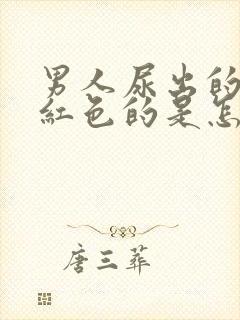 男人尿出的
紅色的是怎
唐三葬